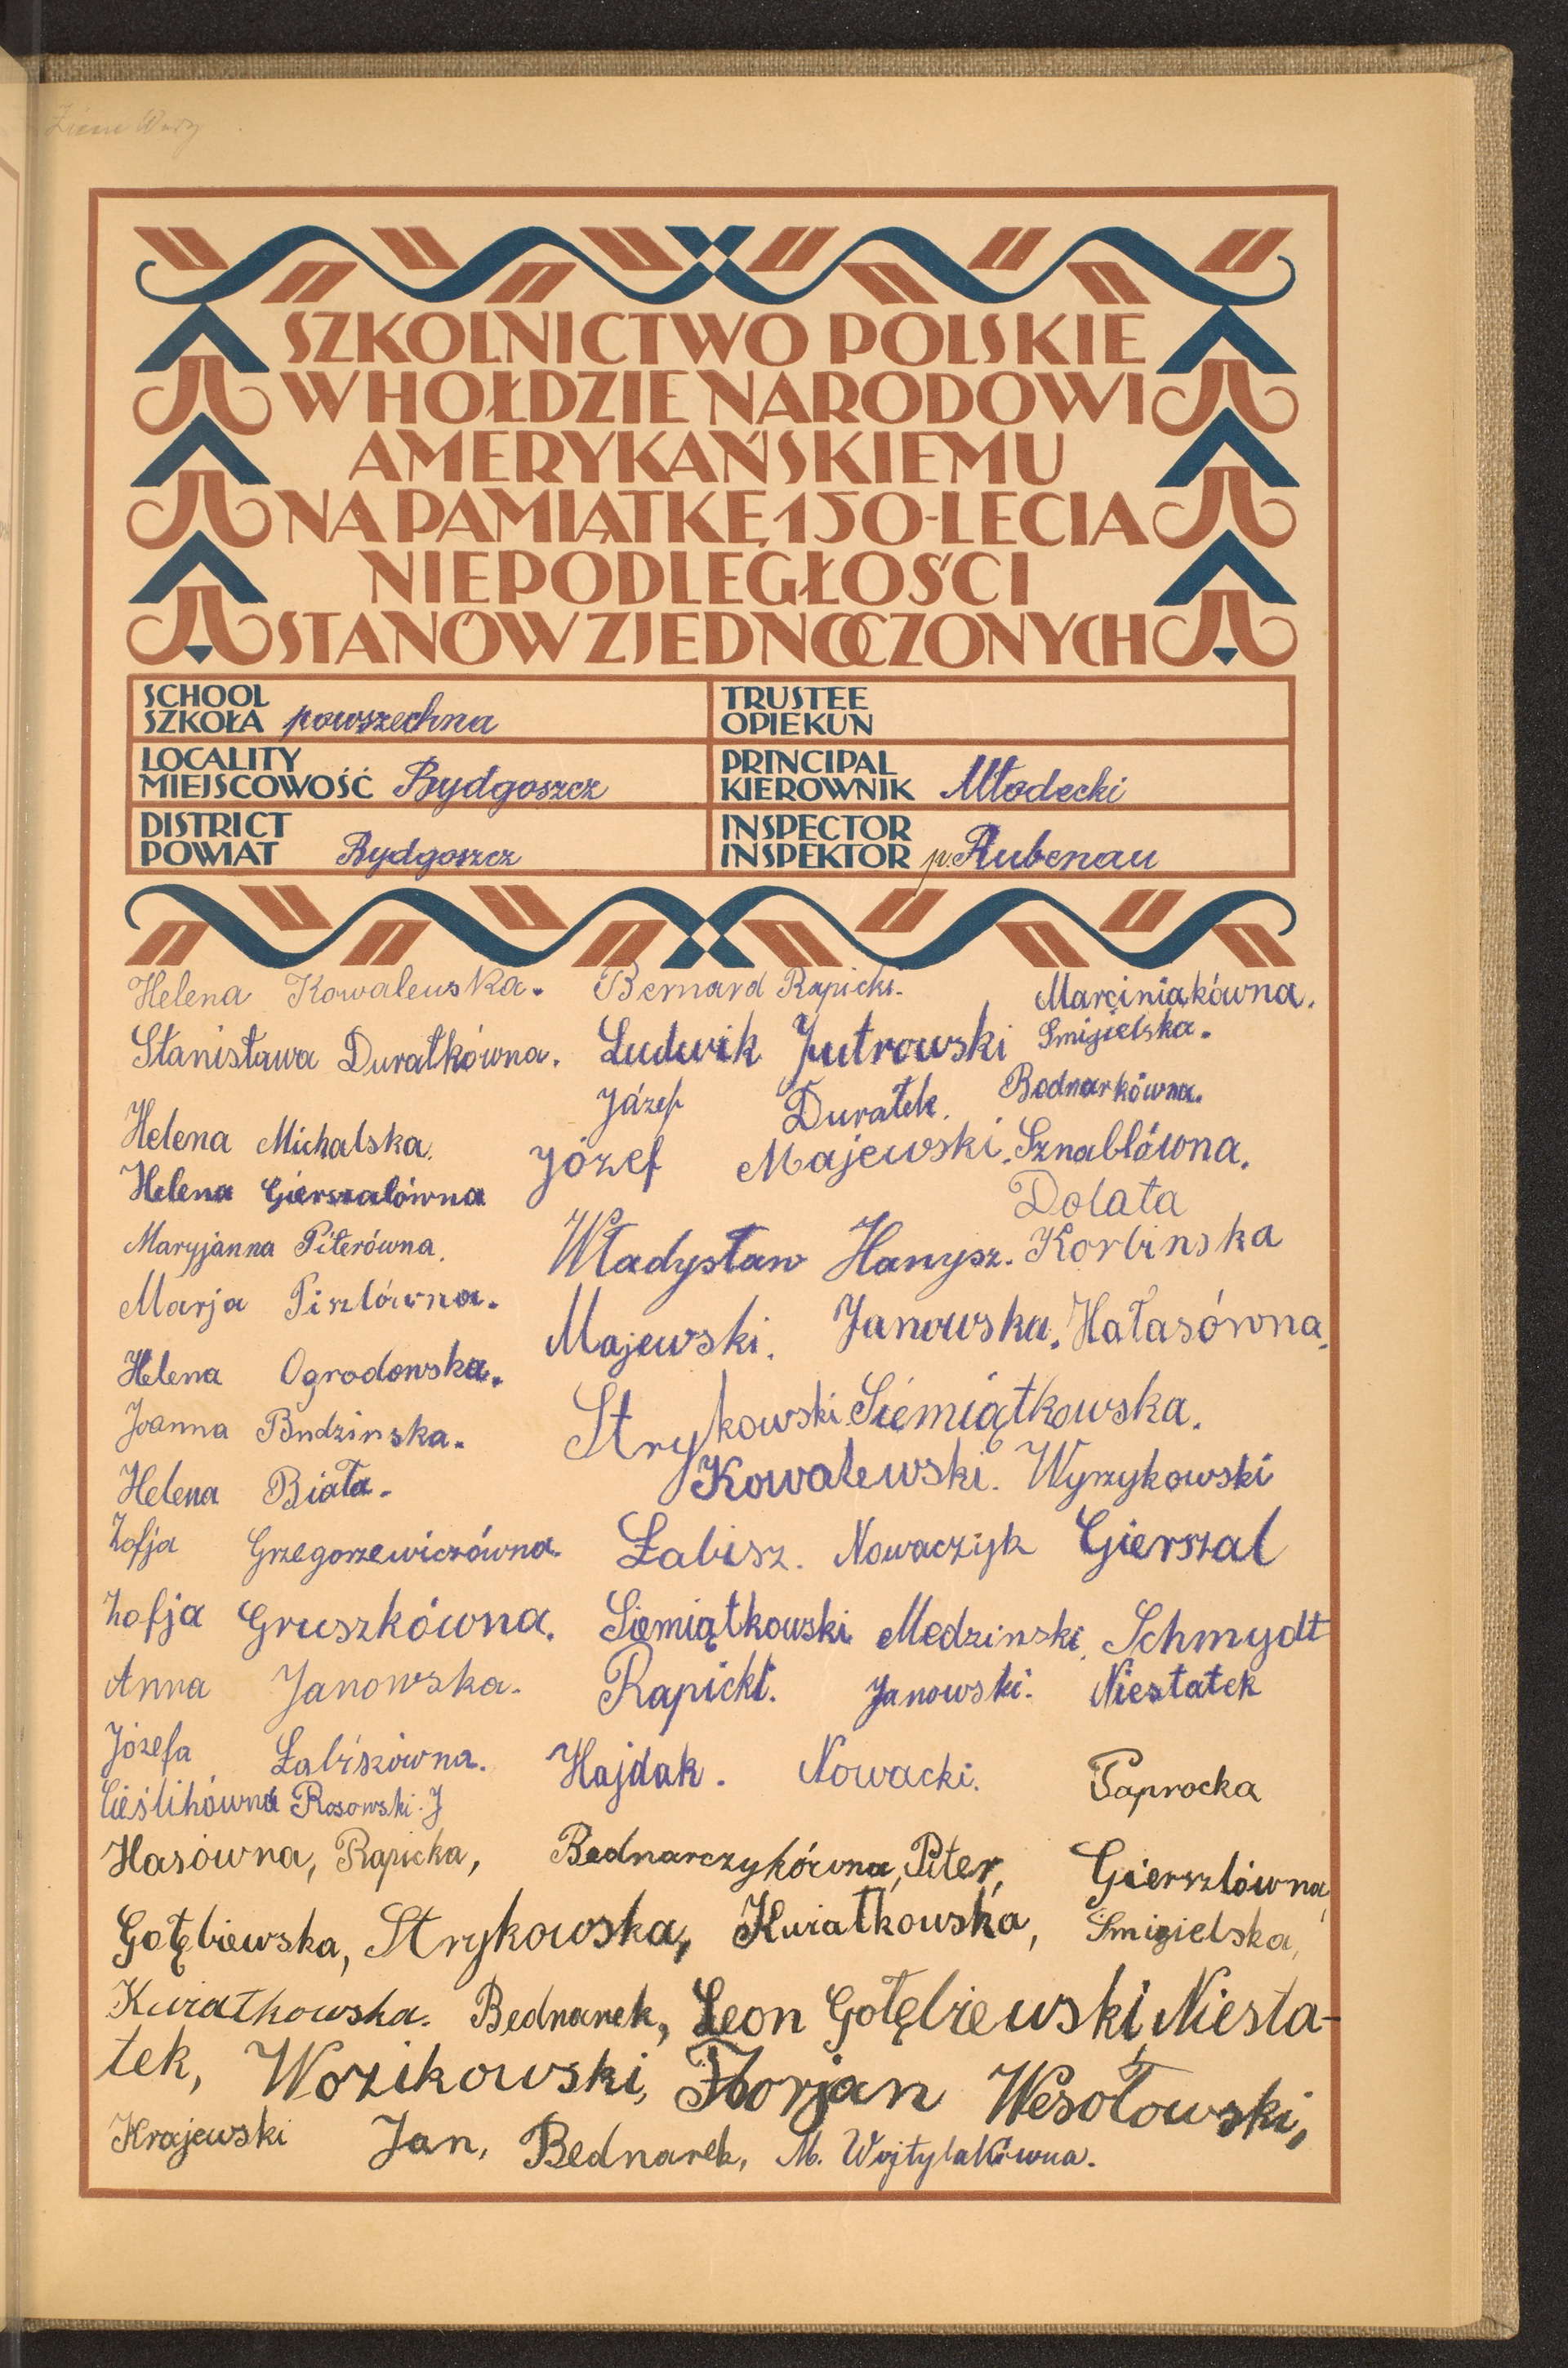 SZKOLNICTWO POLSKIE
W HOŁDZIE NARODOWI
AMERYKAŃSKIEMU
NA PAMIĄTKĘ 150-LECIA
NIEPODLEGŁOŚCI
STANÓW ZJEDNOCZONYCH
SCHOOL
SZKOŁA powszechna
TRUSTEE
OPIEKUN
LOCALITY
MIEJSCOWOŚĆ Bydgoszcz
PRINCIPAL
KIEROWNIK Młodecki
DISTRICT
POWIAT Bydgoszcz
INSPECTOR
INSPEKTOR p. Rubenau
Helena Kowalewska. Bernard Rapicki. Marciniakówna.
Stanisława Duratkówna. Ludwik Jutrowski Smigielska.
Józef Duratek. Bednarkówna.
Helena Michalska. Józef Majewski. Sznablówna.
Helena Gierszalówna Dolata
Maryjanna Piterówna. Władysław Hanysz. Korbinska
Marja Piszlówna. Majewski. Janowska. Hałasówna.
Helena Ogrodowska.
Joanna Budzinska. Strykowski Siemiątkowska.
Helena Biała. Kowalewski. Wyrzykowski
Zofja Grzegorzewiczówna. Łabisz. Nowaczyk Gierszal
Zofja Gruszkówna. Siemiątkowski Medzinski, Schmydt
Anna Janowska. Rapicki. Janowski. Niestatek
Józefa Łabiszówna. Hajdak. Nowacki. Paprocka
Cieślikówna Rosowski. J
Hasówna, Rapicka, Bednarczykówna, Piter, Gierszlówna,
Gołębiewska, Strykowska, Kwiatkowska, Smigielska,
Kwiatkowska. Bednarek, Leon Gołębiewski, Niesta-
tek, Wozikowski, Florjan Wesołowski,
Krajewski Jan, Bednarek, M. Wojtylakówna.